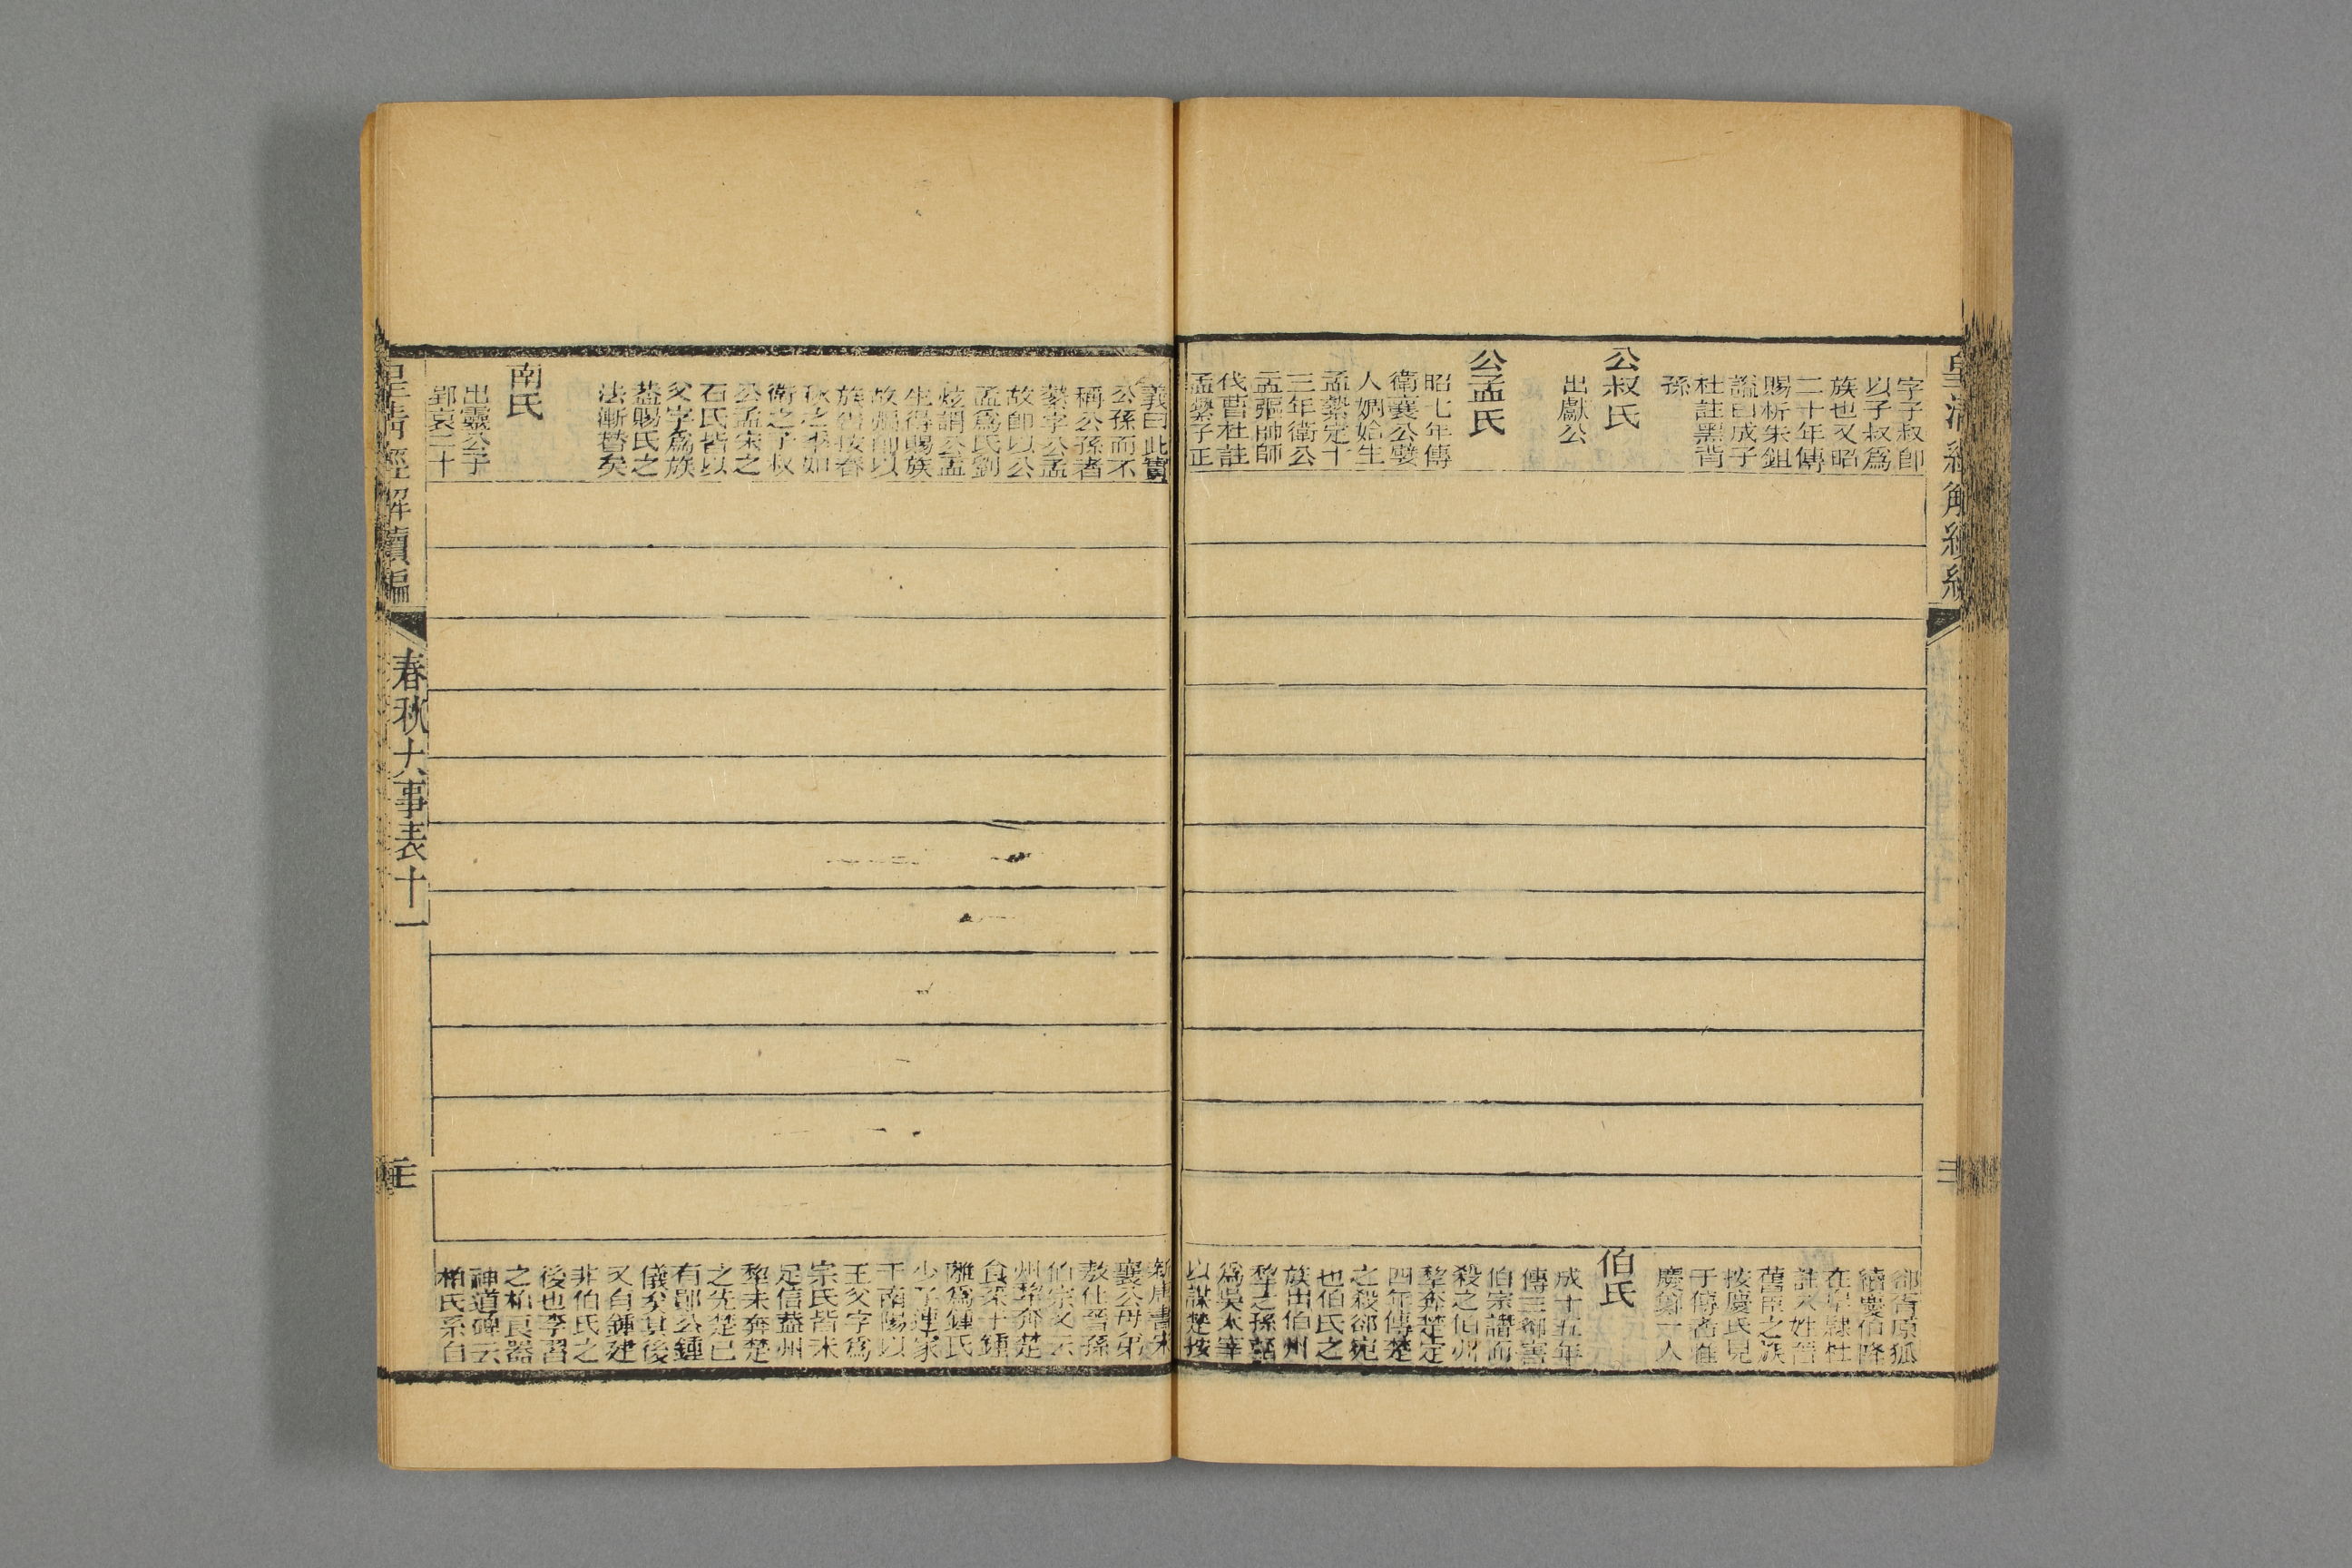 字子叔卽
以子叔爲
族也又昭
二十年傳
賜析朱鉏
謚曰成子
杜註黑背
孫
公叔氏
出獻公
公孟氏
昭七年傳
衛襄公嬖
人婤姶生
孟縶定十
三年衛公
孟彄帥師
伐曹杜註
孟縶子正
郤胥原狐
續慶伯降
在皁隸杜
註八姓晉
舊臣之族
按慶氏見
于傳者惟
慶鄭一人
伯氏
成十五年
傳三郤害
伯宗譖而
殺之伯州
犂奔楚定
四年傳楚
之殺郤宛
也伯氏之
族出伯州
犂之孫嚭
爲吳太宰
以謀楚按
義曰此實
公孫而不
稱公孫者
縶字公孟
故卽以公
孟爲氏劉
炫謂公孟
生得賜族
故彄卽以
族告按春
秋之季如
衛之子叔
公孟宋之
石氏皆以
父字爲族
蓋賜氏之
法漸替矣
南氏
出靈公子
郢哀二十
新唐書宋
襄公母弟
敖仕晉孫
伯宗又云
州犂奔楚
食采于鍾
離爲鍾氏
少子連家
于南陽以
王父字爲
宗氏皆未
足信蓋州
犂未奔楚
之先楚已
有鄖公鍾
儀矣其後
又有鍾建
非伯氏之
後也李習
之柏良器
神道碑云
柏氏系自
皇清經解續編
春秋大事表十一